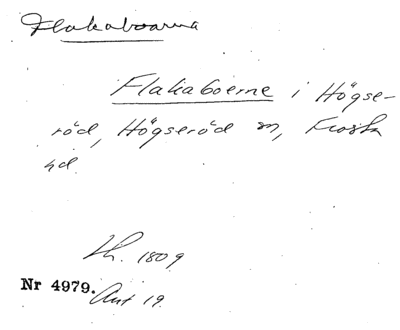 Flakaboarna
Flakaboerne i Högse-
röd, Högseröd sn, Frosta
hd.
Lh. 1809
Nr 4979.
Ant 19.